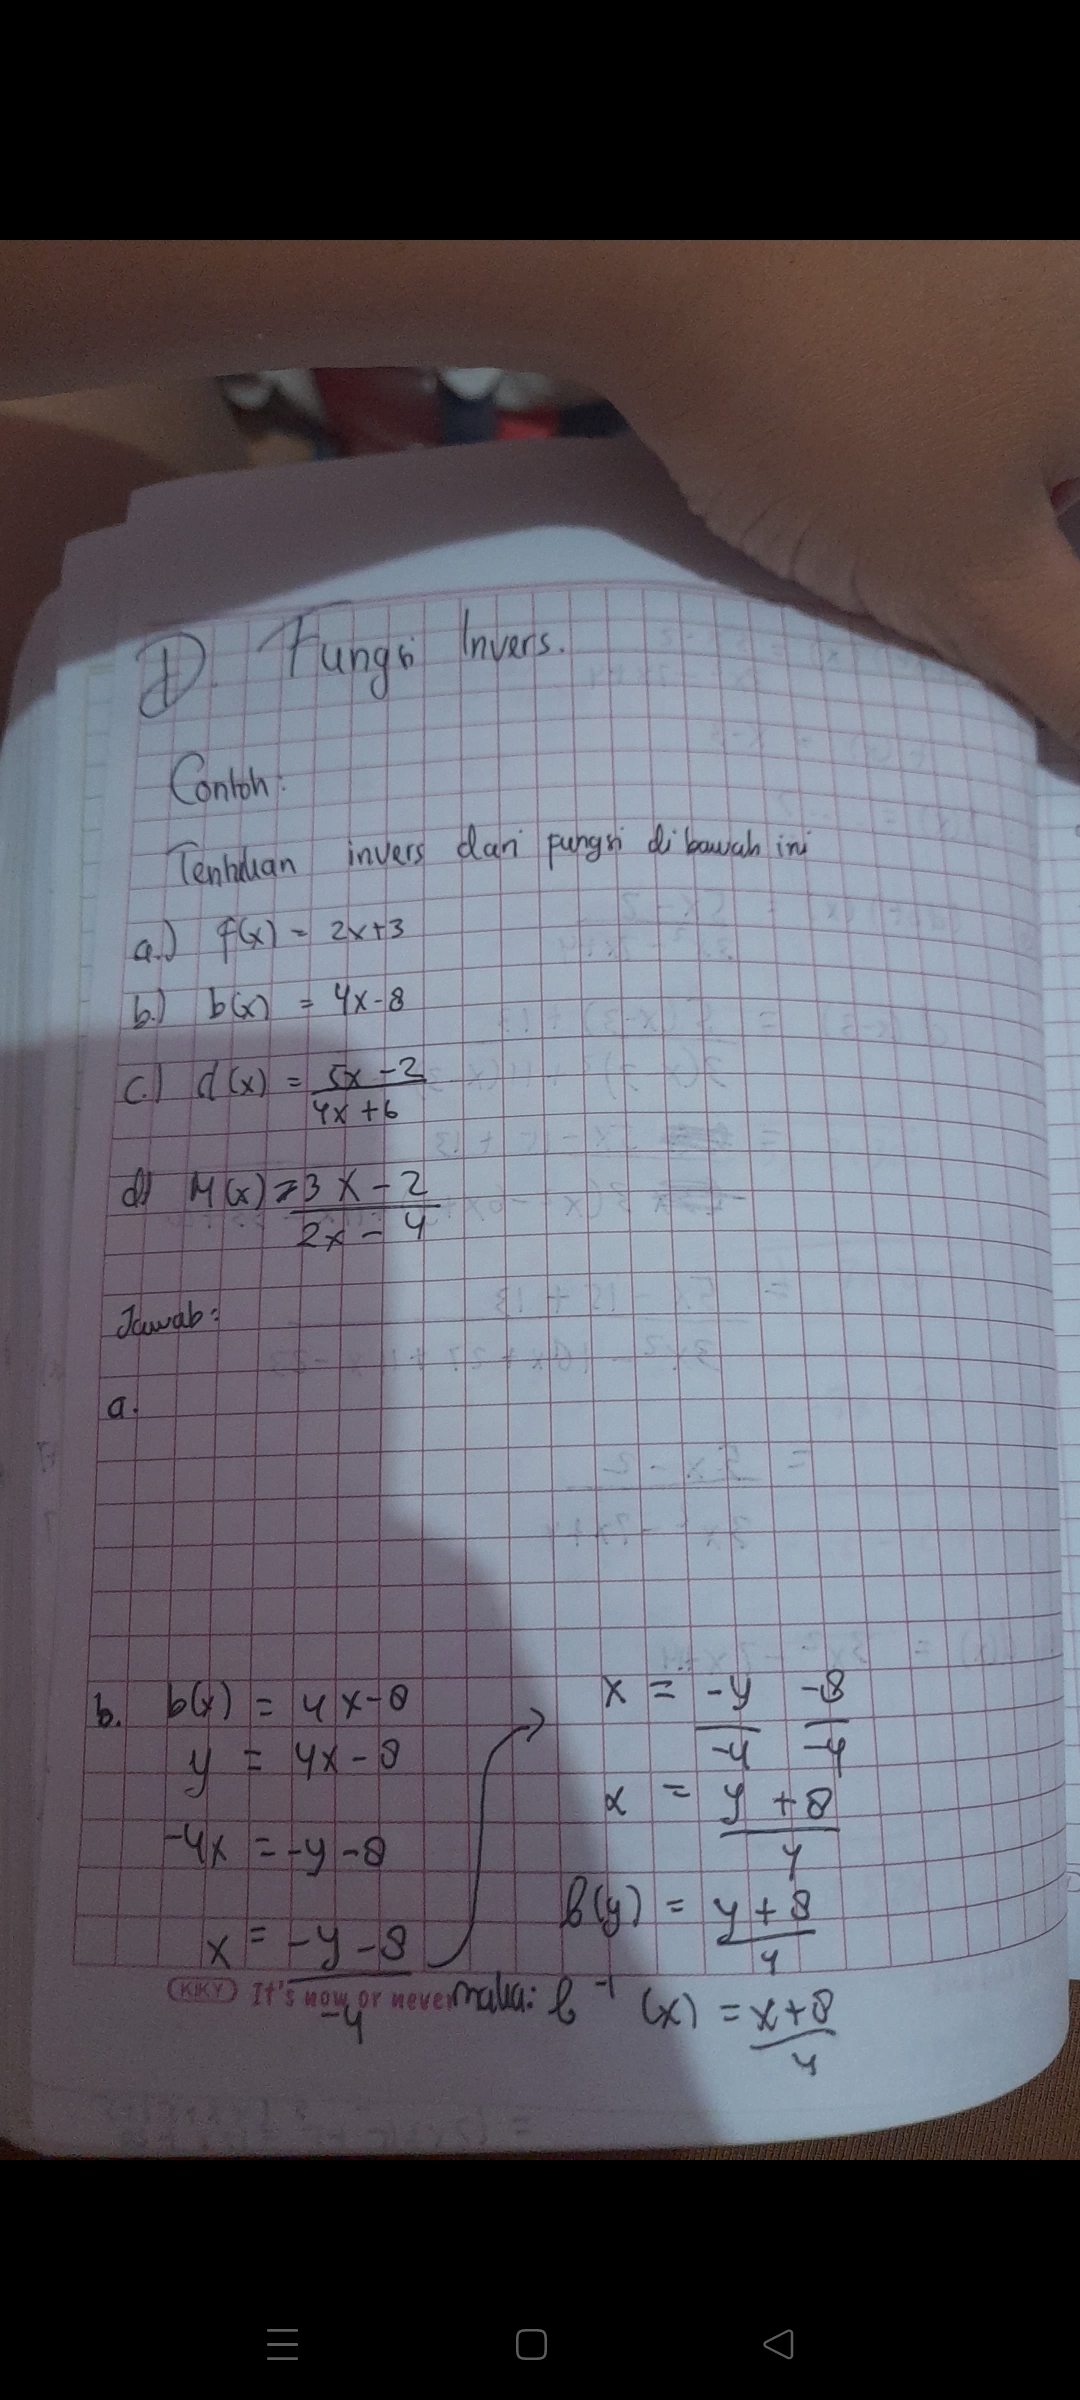 D. Fungsi Invers.
Contoh:
Tentukan invers dari fungsi di bawah ini
a.) f(x) = 2x+3
b.) b(x) = 4x-8
c.) d(x) = 5x-2
4x+6
d) M(x) = 3x-2
2x-4
Jawab:
a.
b. b(x) = 4x-8
y = 4x-8
-4x = -y-8
x = -y-8
-4
x = -y -8
-4 -4
x = y+8
4
b(y) = y+8
4
KIKY It's now or never
maka: b⁻¹(x) = x+8
4